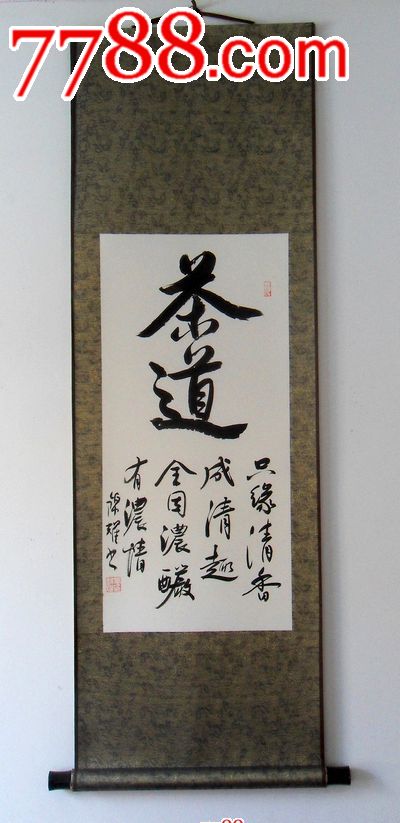 7788.com
茶道
只缘清香
成清趣
全因濃釅
有濃情